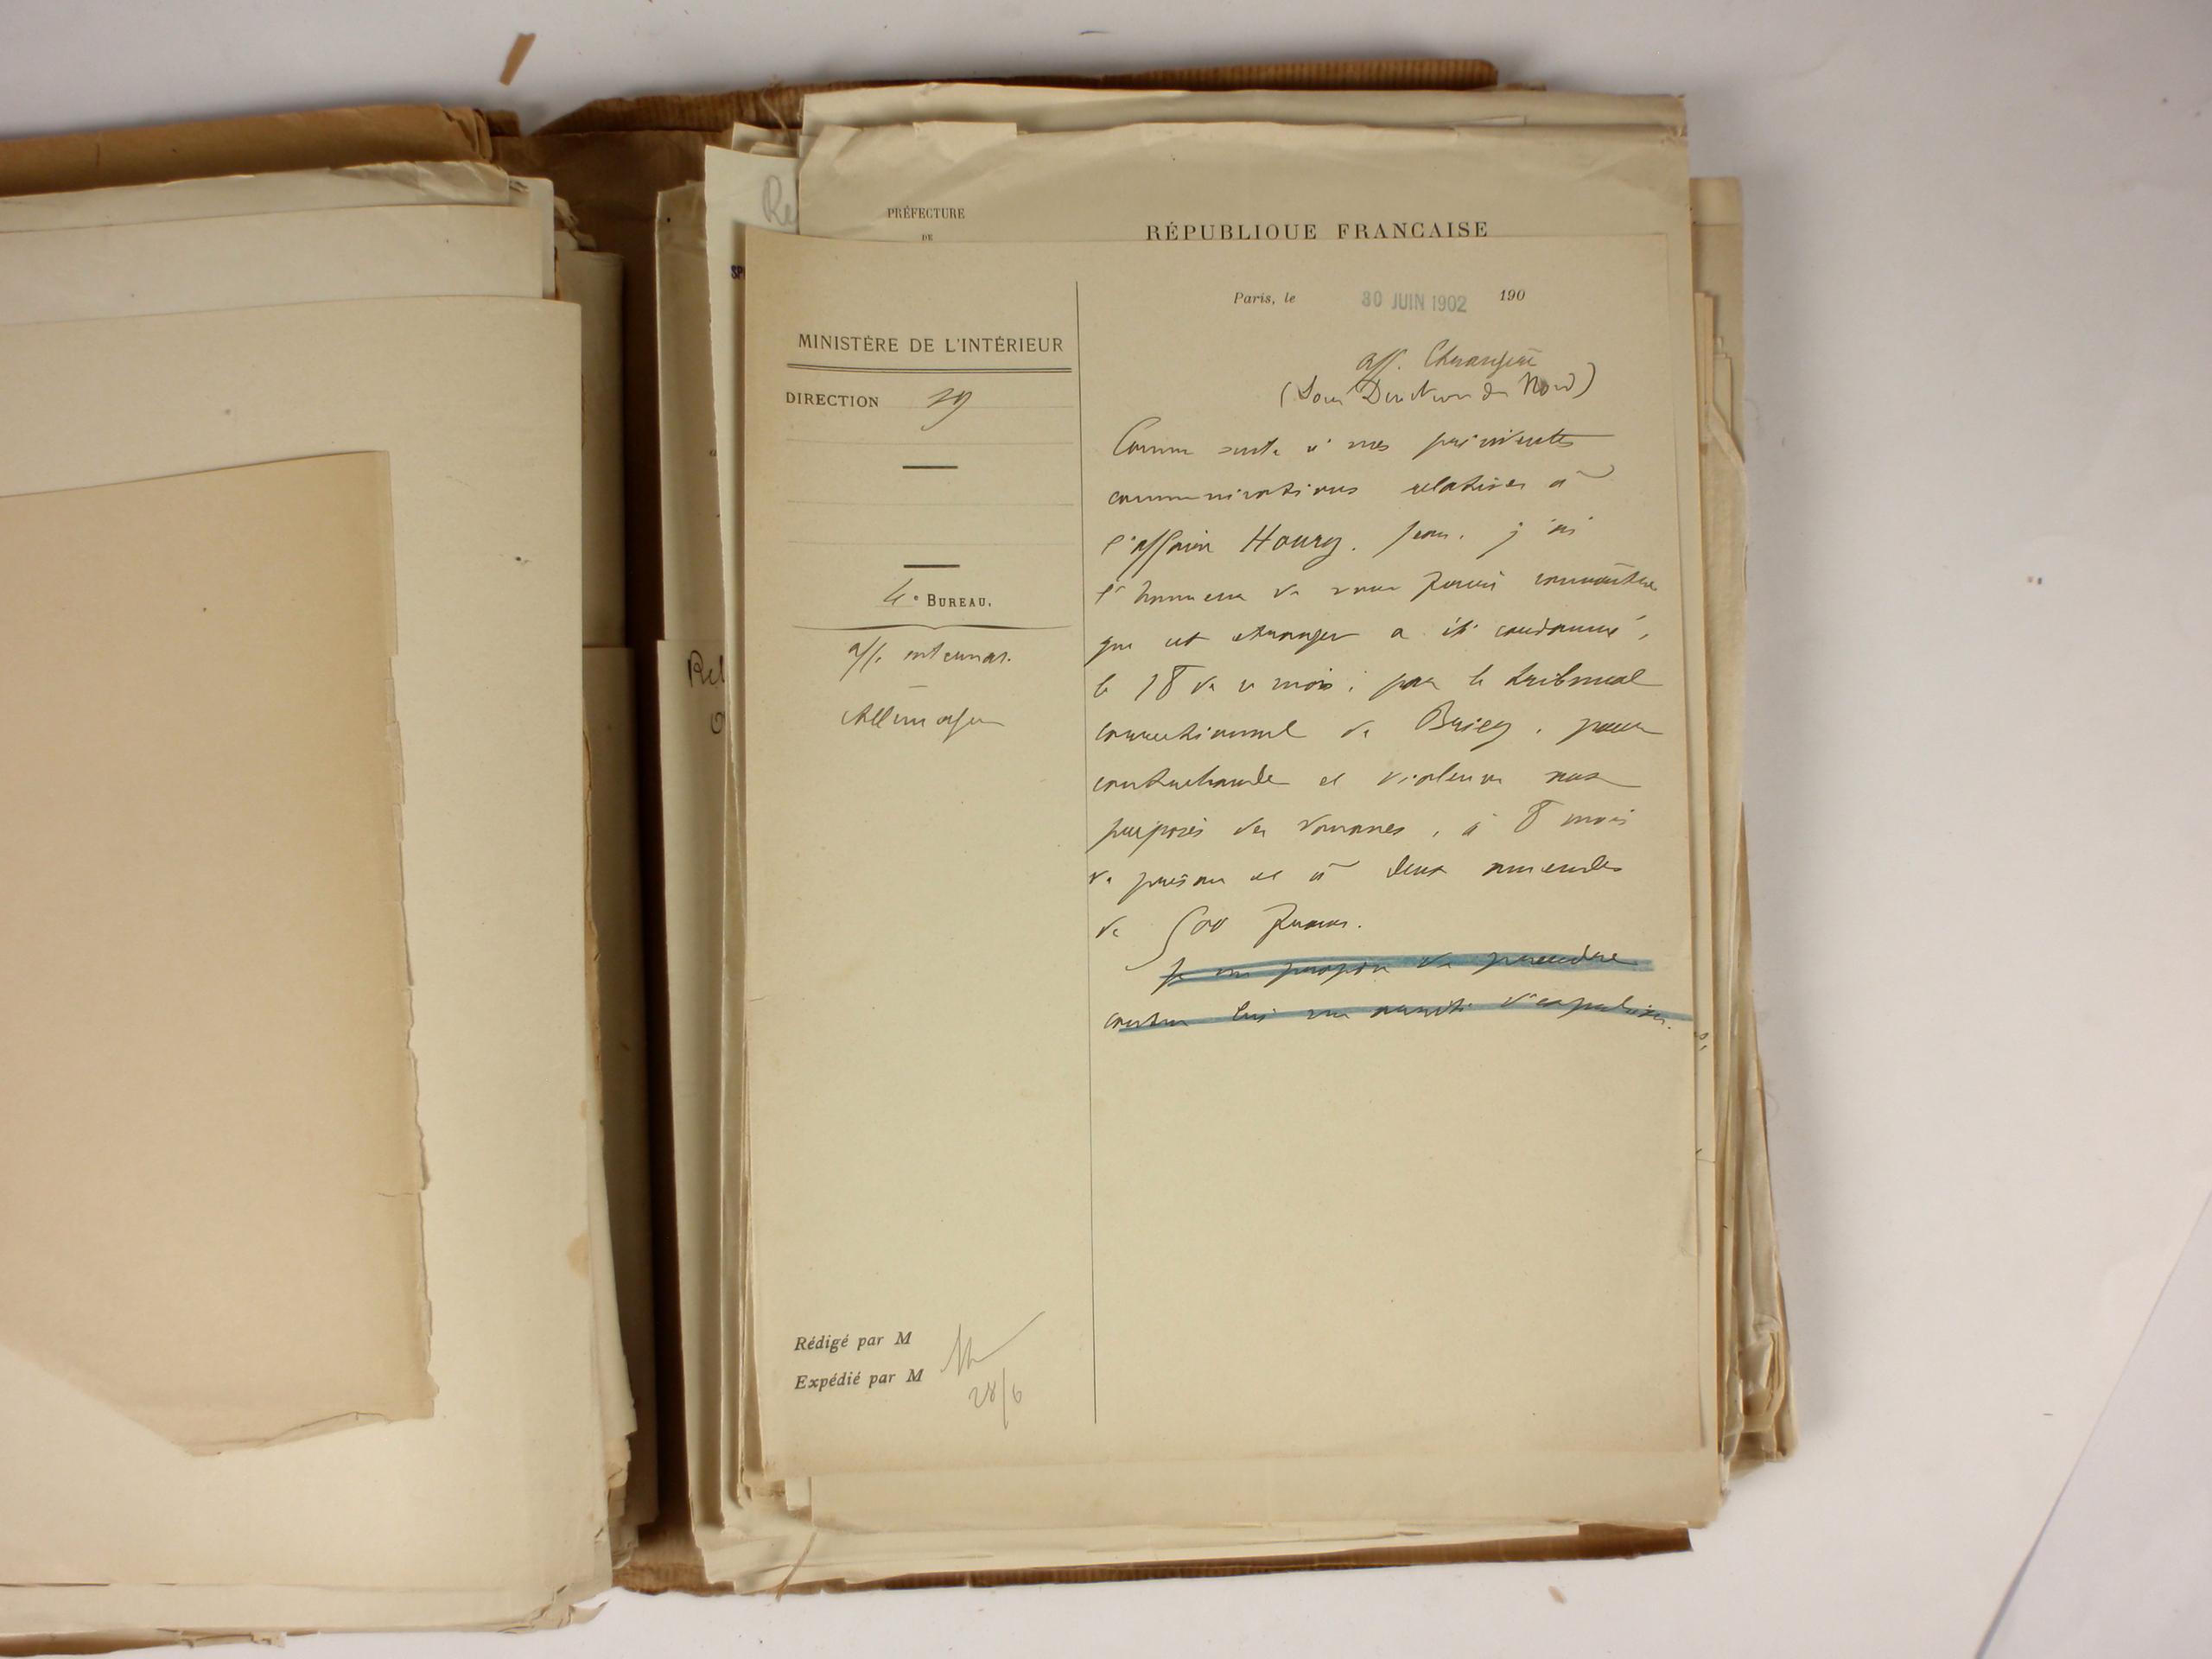 PRÉFECTURE
DE
RÉPUBLIQUE FRANÇAISE
Re
SP
Paris, le 30 JUIN 1902 190
MINISTÈRE DE L'INTÉRIEUR
DIRECTION Sg
4e BUREAU.
aff. internat.
Allemagne
Rel
aff. Etrangères
(Sous Direction du Nord)
Comme suite à mes précédentes
communications relatives à
l'affaire Houry, Jean, j'ai
l'honneur de vous faire connaître
que cet étranger a été condamné,
le 18 de ce mois, par le tribunal
correctionnel de Briey, pour
contrebande et violences aux
préposés des douanes, à 8 mois
de prison et à deux amendes
de 500 francs.
Je me propose de prendre
contre lui un arrêté d'expulsion.
Rédigé par M
Expédié par M
28/6